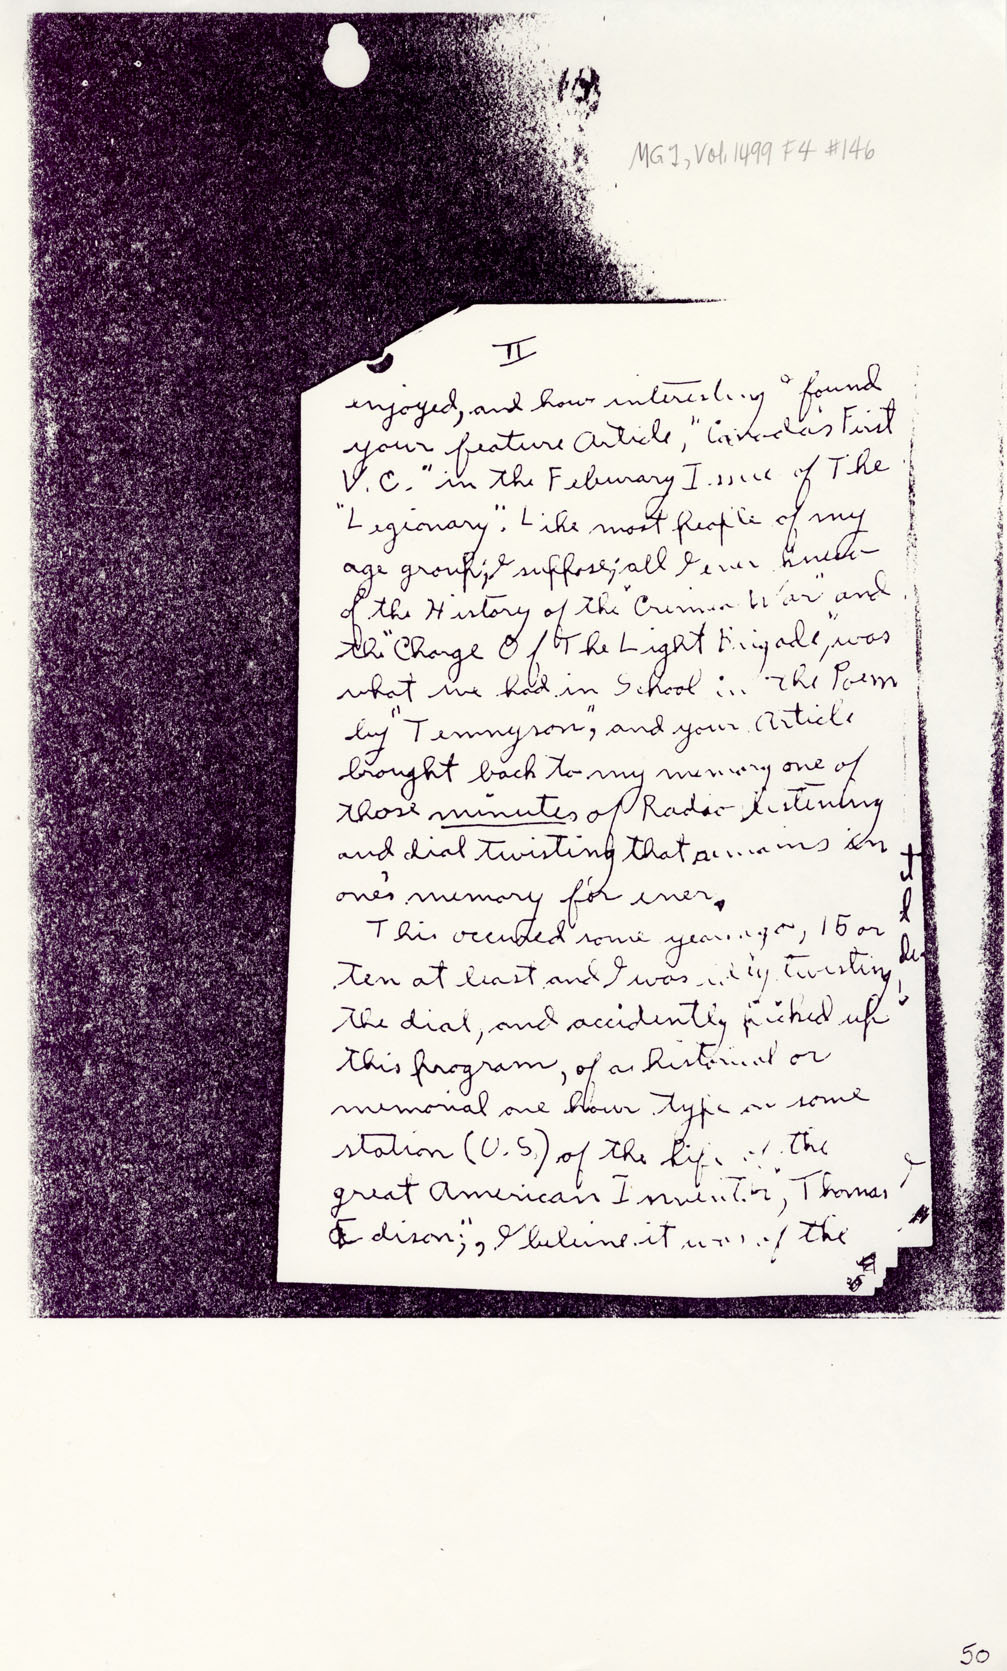 MG1, Vol. 1499 F4 #146
II
enjoyed, and how interesting I found
your feature Article, "Canada's First
V.C." in the Feburary Issue of The
"Legionary". Like most people of my
age group; I suppose; all I ever knew
of the History of the "Crimea War" and
the "Charge Of The Light Brigade," was
what we had in School in the Poem
by "Tennyson", and your Article
brought back to my memory one of
those minutes of Radio listening
and dial twisting that remains in
one's memory for ever.
This occured some years ago, 15 or
ten at least and I was idly twisting
the dial, and accidently picked up
this program, of a historical or
memorial one hour type on some
station (U.S.) of the life of the
great American Inventor", Thomas
Edison";, I believe it was of the
50